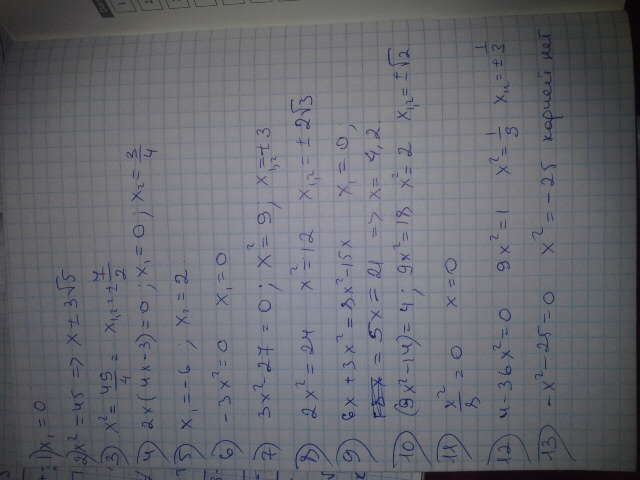 1) x₁ = 0
2) x² = 45 => x ± 3√5
3) x² = 49/4 = x₁,₂ = ± 7/2
4) 2x(4x-3) = 0; x₁ = 0; x₂ = 3/4
5) x₁ = -6; x₂ = 2
6) -3x² = 0 x₁ = 0
7) 3x² - 27 = 0; x² = 9; x₁,₂ = ±3
8) 2x² = 24 x² = 12 x₁,₂ = ± 2√3
9) 6x + 3x² = 8x² - 15x x₁ = 0,
= 5x = 21 => x = 4,2
10) (9x² - 14) = 4; 9x² = 18 x² = 2 x₁,₂ = ±√2
11) x²/8 = 0 x = 0
12) 4 - 36x² = 0 9x² = 1 x² = 1/9 x₁,₂ = ± 1/3
13) -x² - 25 = 0 x² = -25 корней нет